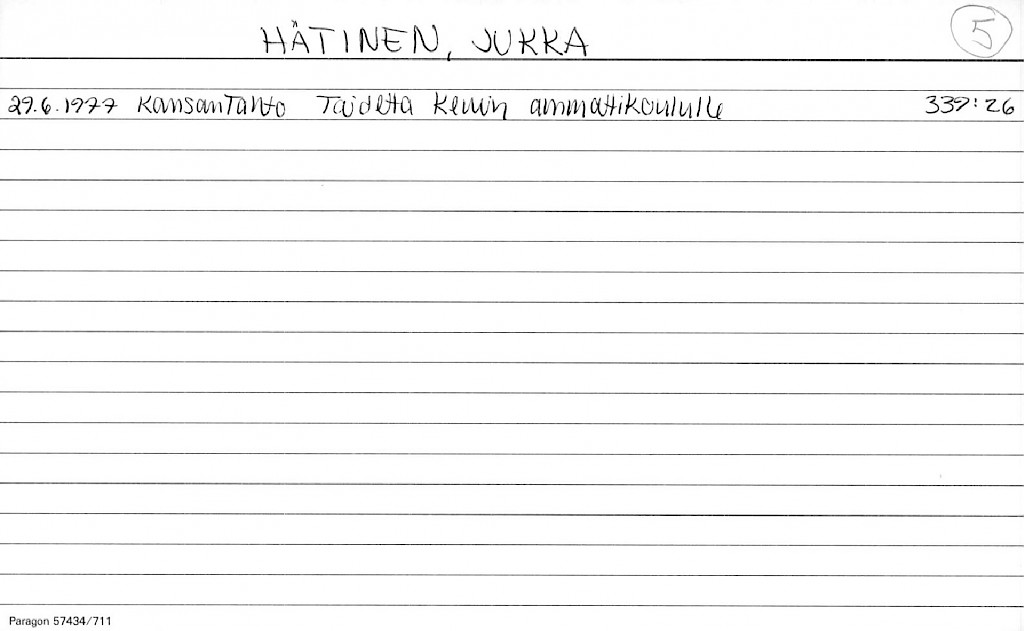 HÄTINEN, JUKKA 5
29.6.1977 Kansan Tahto Taidetta Kemin ammattikoululle 339:26
Paragon 57434/711